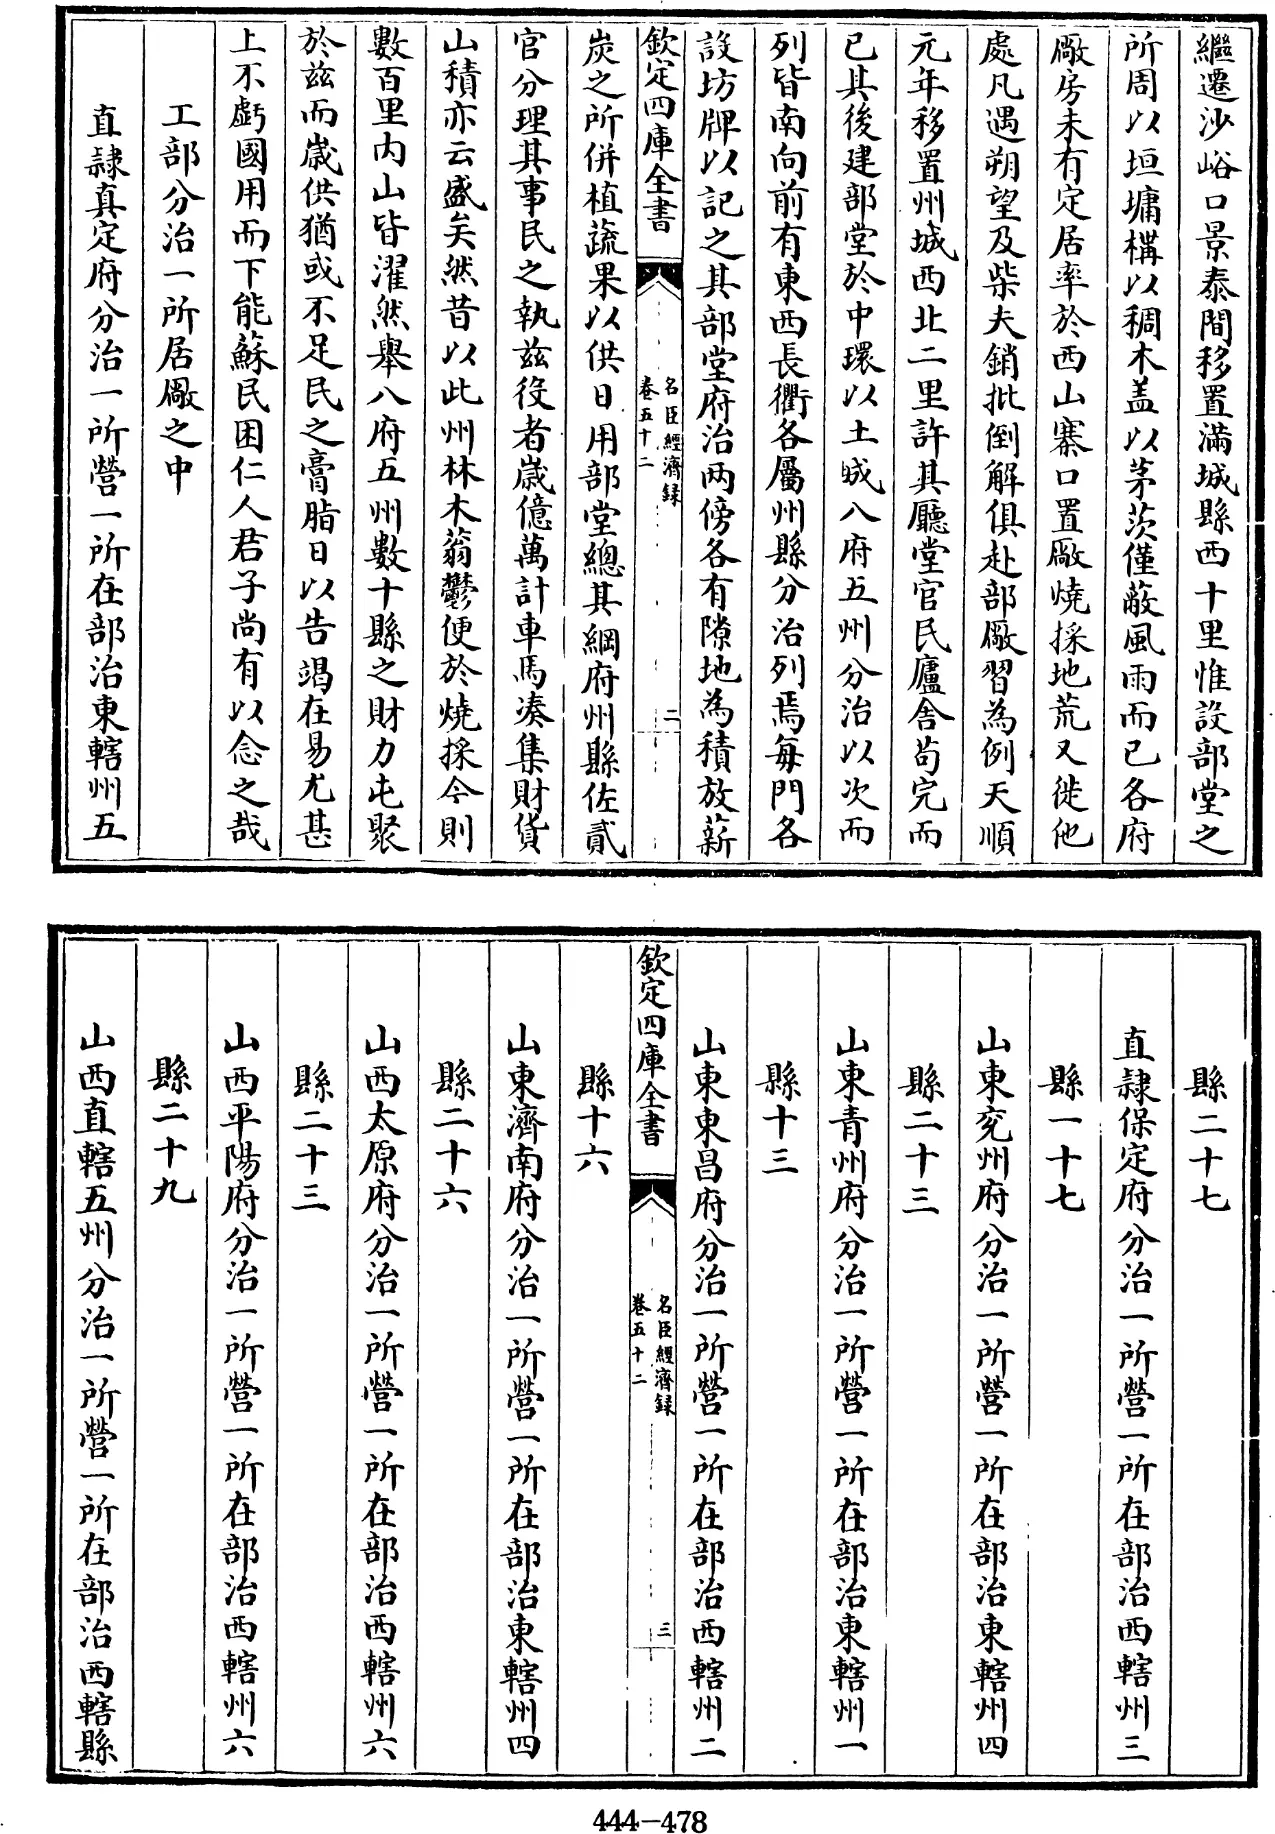 繼遷沙峪口景泰間移置滿城縣西十里惟設部堂之
所周以垣墉構以稠木盖以茅茨僅蔽風雨而已各府
厰房未有定居率於西山寨口置厰燒採地荒又徙他
處凡遇朔望及柴夫銷批倒解俱赴部厰習為例天順
元年移置州城西北二里許其廳堂官民廬舍茍完而
已其後建部堂於中環以土城八府五州分治以次而
列皆南向前有東西長衢各屬州縣分治列焉每門各
設坊牌以記之其部堂府治两傍各有隙地為積放薪
欽定四庫全書
名臣經濟録
卷五十二
二
炭之所併植蔬果以供日用部堂總其綱府州縣佐貳
官分理其事民之執兹役者嵗億萬計車馬湊集財貨
山積亦云盛矣然昔以此州林木蓊鬱便於燒採今則
數百里内山皆濯然舉八府五州數十縣之財力屯聚
於兹而嵗供猶或不足民之膏脂日以告竭在易尤甚
上不虧國用而下能蘇民困仁人君子尚有以念之哉
工部分治一所居厰之中
直隷真定府分治一所營一所在部治東轄州五
縣二十七
直隷保定府分治一所營一所在部治西轄州三
縣一十七
山東兖州府分治一所營一所在部治東轄州四
縣二十三
山東青州府分治一所營一所在部治東轄州一
縣十三
山東東昌府分治一所營一所在部治西轄州二
欽定四庫全書
名臣經濟録
卷五十二
三
縣十六
山東濟南府分治一所營一所在部治東轄州四
縣二十六
山西太原府分治一所營一所在部治西轄州六
縣二十三
山西平陽府分治一所營一所在部治西轄州六
縣二十九
山西直轄五州分治一所營一所在部治西轄縣
444-478